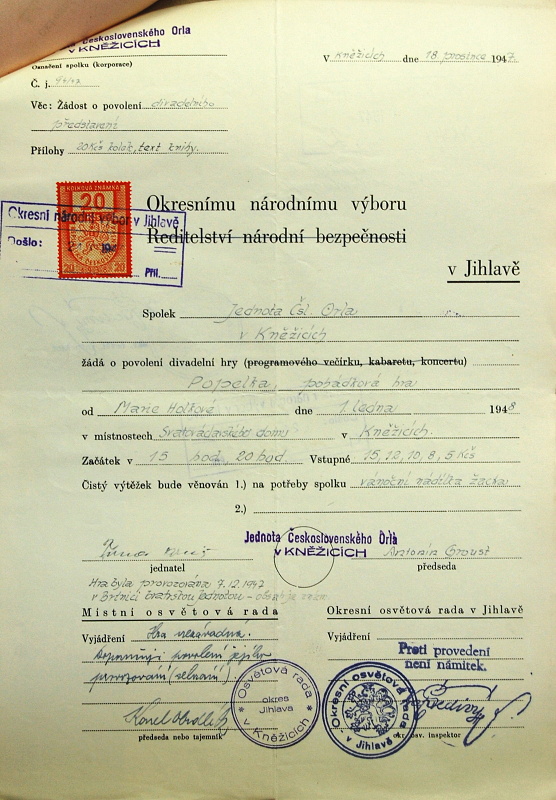 Československého Orla
v KNĚŽICÍCH
Označení spolku (korporace)
V Kněžicích dne 18. prosince 1947
Č. j. 94/47
Věc: Žádost o povolení divadelního
představení
Přílohy 20 Kčs kolek, text knihy.
KOLKOVÁ ZNÁMKA
20
20 20
Okresní národní výbor v Jihlavě
Došlo:
Příl.
Okresnímu národnímu výboru
Ředitelství národní bezpečnosti
v Jihlavě
Spolek Jednota Čsl. Orla
v Kněžicích
žádá o povolení divadelní hry (programového večírku, kabaretu, koncertu)
Popelka, pohádková hra
od Marie Holkové dne 1. ledna 1948
v místnostech Svatováclavského domu v Kněžicích.
Začátek v 15 hod, 20 hod. Vstupné 15, 12, 10, 8, 5 Kčs
Čistý výtěžek bude věnován 1.) na potřeby spolku vánoční nadílka
2.)
Jednota Československého Orla
v KNĚŽICÍCH
Antonín
jednatel předseda
Hra byla provozována 7.12.1947
v Brtnici bratrskou jednotou –
Místní osvětová rada
Okresní osvětová rada v Jihlavě
Vyjádření Hra nezávadná.
Vyjádření
Proti provedení
není námitek.
povolení jejího
provozování
Karel
předseda nebo tajemník
Osvětová rada
okres
Jihlava
v Kněžicích
Okresní osvětová rada
v Jihlavě
okr. osv. inspektor